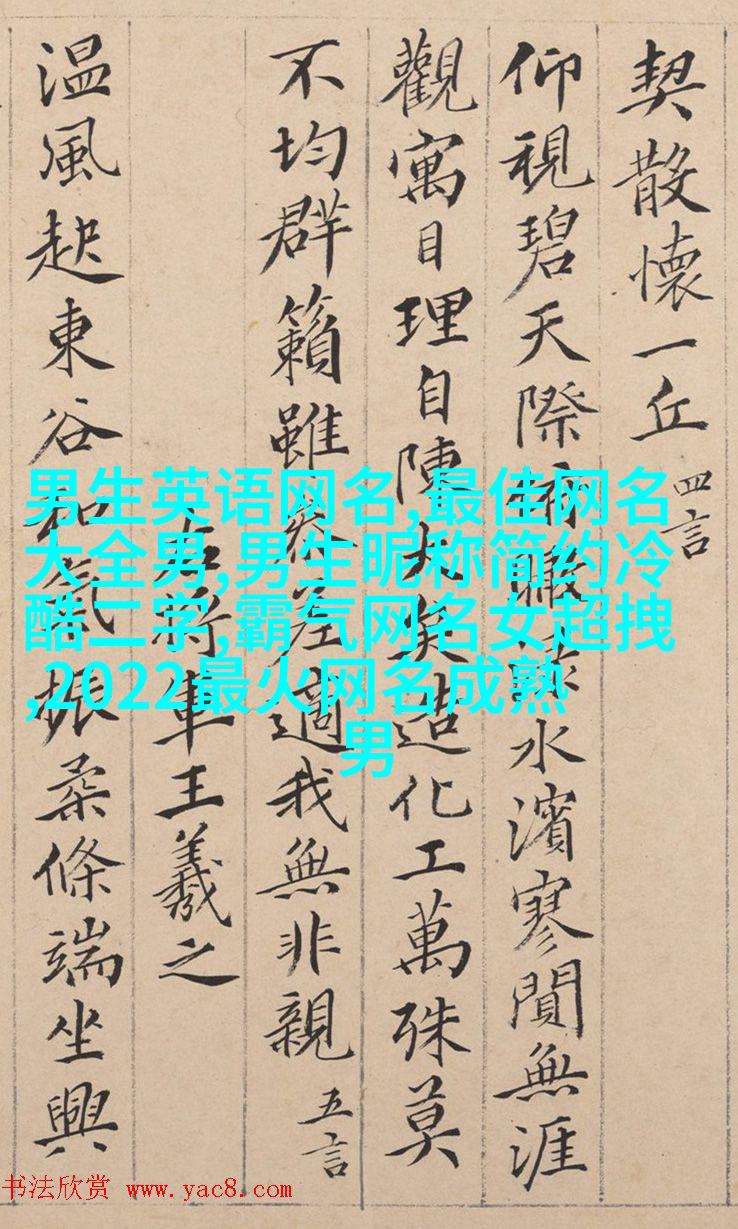 契散懷一丘 四言
仰視碧天際
水濱寥闃無涯
觀寓目理自陳大矣造化工萬殊莫
不均群籟雖參差適我無非親 五言
右將軍王羲之
溫風起東谷和氣振柔條端坐興
男生英语网名,最佳网名
大全男,男生昵称简约冷
酷二字,霸气网名女超拽
,2022最火网名成熟
男
书法欣赏 www.yac8.com